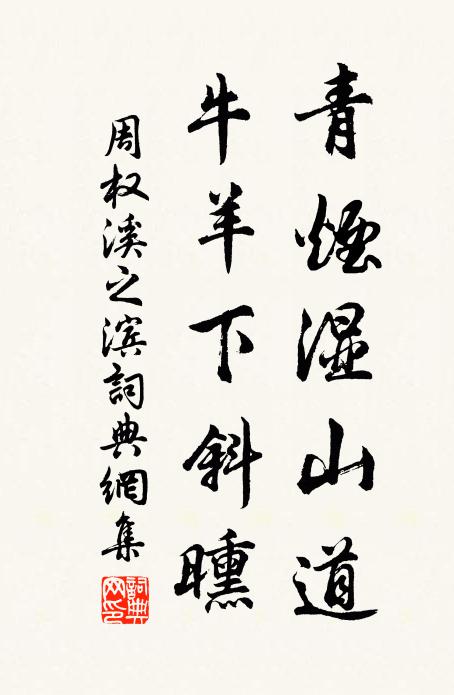 青煙湿山道
牛羊下斜曛
周权溪之滨詞典網集
詞典网印